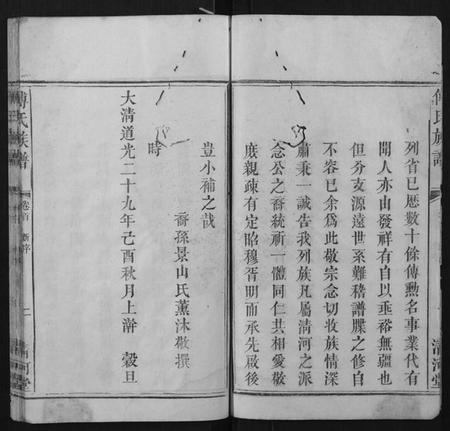 傅氏族譜
清河堂
列省已歷數十餘傳勲名事業代有
聞人亦由發祥有自以垂裕無疆也
但分支源遠世系難稽譜牒之修自
不容已余爲此敬宗念切收族情深
肅秉一誠告我列族凡屬清河之派
念公之裔統祈一體同仁共相愛敬
庶親疎有定昭穆胥明而承先啟後
豈小補之哉
裔孫景山氏薰沐敬撰
時
大清道光二十九年己酉秋月上澣 穀旦
傅氏族譜
卷首
新序
二
清河堂